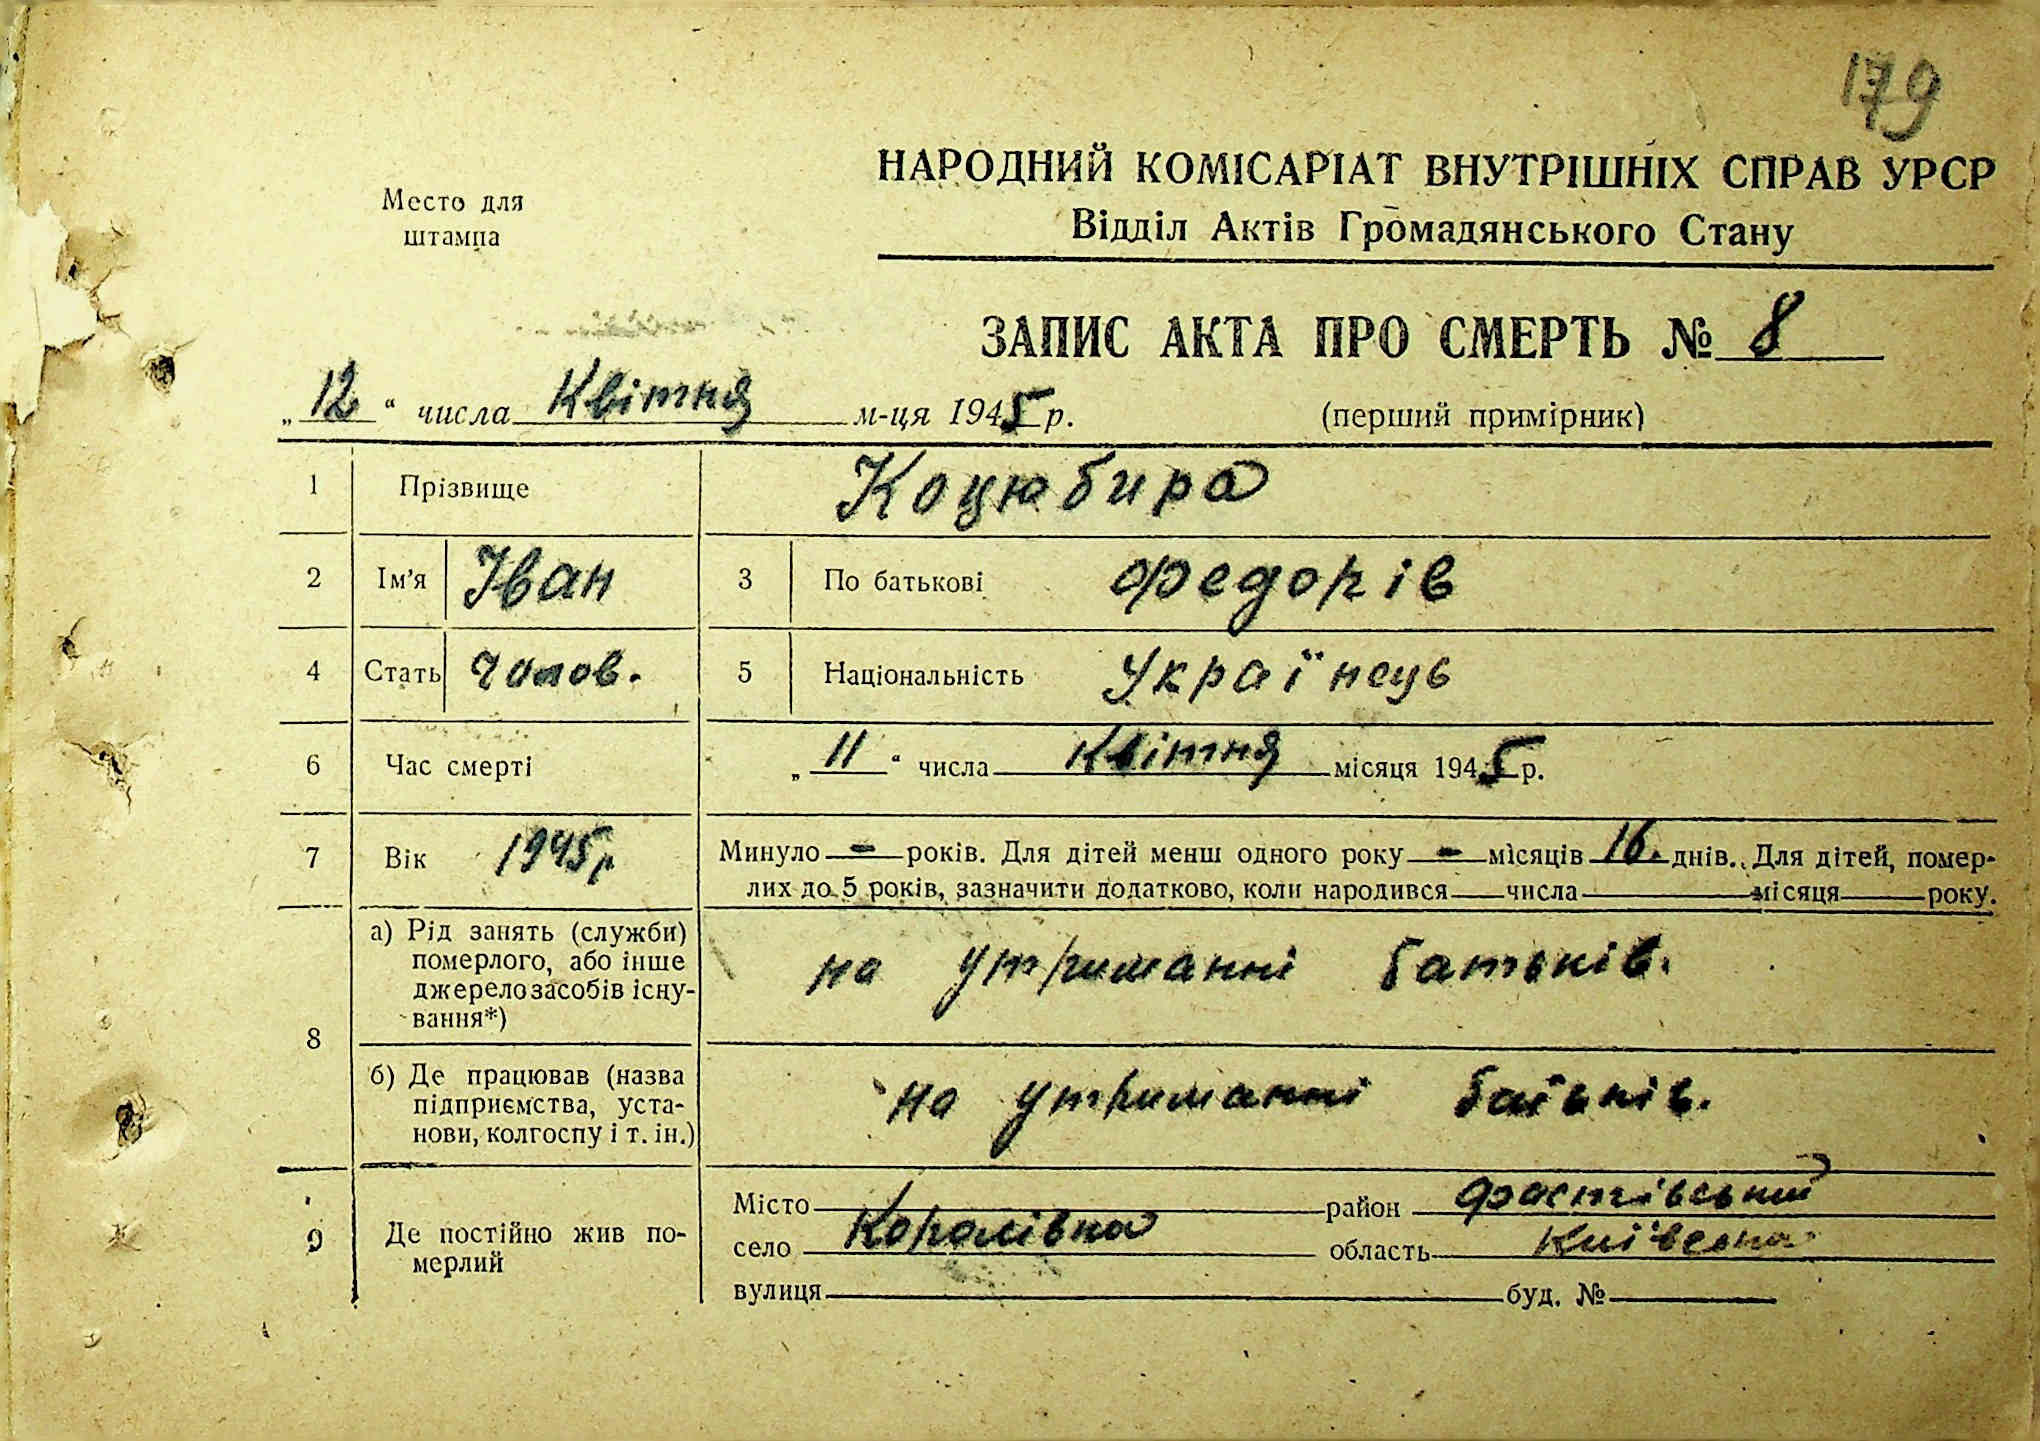 179
НАРОДНИЙ КОМІСАРІАТ ВНУТРІШНІХ СПРАВ УРСР
Відділ Актів Громадянського Стану
Место для
штампа
ЗАПИС АКТА ПРО СМЕРТЬ № 8
„12“ числа Квітня м-ця 1945 р.
(перший примірник)
1 Прізвище Коцюбира
2 Ім’я Іван 3 По батькові Федорів
4 Стать чолов. 5 Національність Українець
6 Час смерті „11“ числа квітня місяця 1945 р.
7 Вік 1945 р. Минуло - років. Для дітей менш одного року - місяців 16. днів. Для дітей, помер-
лих до 5 років, зазначити додатково, коли народився числа місяця року.
8 а) Рід занять (служби)
померлого, або інше
джерело засобів існу-
вання*)
на утриманні батьків.
б) Де працював (назва
підприємства, уста-
нови, колгоспу і т. ін.)
на утриманні батьків.
9 Де постійно жив по-
мерлий
Місто район Фастівський
село Королівка область Київська
вулиця буд. №